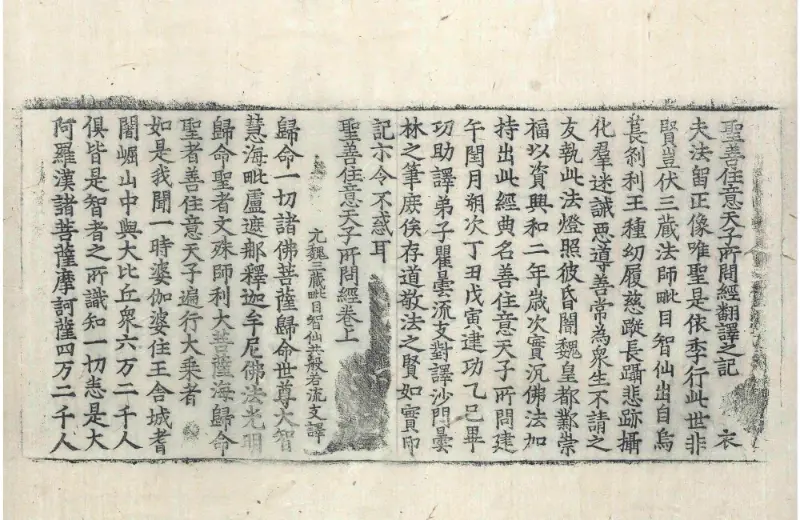 聖善住意天子所問經翻譯之記 衣
夫法留正像唯聖是依季行此世非
賢豈伏三藏法師毗目智仙出自烏
萇刹利王種幼履慈蹤長躡悲跡攝
化羣迷誡惡導善常為衆生不請之
友執此法燈照彼昏闇魏皇都鄴崇
福以資興和二年歲次實沉佛法加
持出此經典名善住意天子所問建
午閏月朔次丁丑戊寅建功乙巳畢
功助譯弟子瞿曇流支對譯沙門曇
林之筆庶俟存道敬法之賢如實印
記亦令不惑耳
聖善住意天子所問經卷上
元魏三藏毗目智仙共般若流支譯
歸命一切諸佛菩薩歸命世尊大智
慧海毗盧遮那釋迦牟尼佛法光明
歸命聖者文殊師利大菩薩海歸命
聖者善住意天子遍行大乘者
如是我聞一時婆伽婆住王舍城耆
闍崛山中與大比丘衆六万二千人
俱皆是智者之所識知一切悉是大
阿羅漢諸菩薩摩訶薩四万二千人